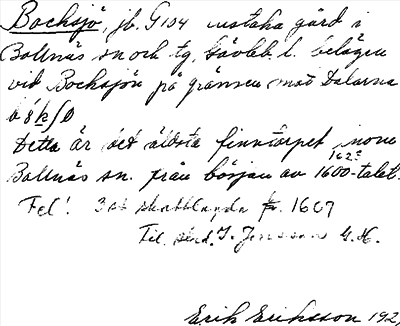 Bocksjö, jb. G104 enstaka gård i
Bollnäs sn och tg, Gävlebl. l. belägen
vid Bocksjön på gränsen mot Dalarna
Detta är det äldsta finntorpet inom
1623
Bollnäs sn. från början av 1600-talet.
Fel! 3 st skattlagda 1607
Fil. stud. J. Jonsson G.H.
Erik Eriksson 192